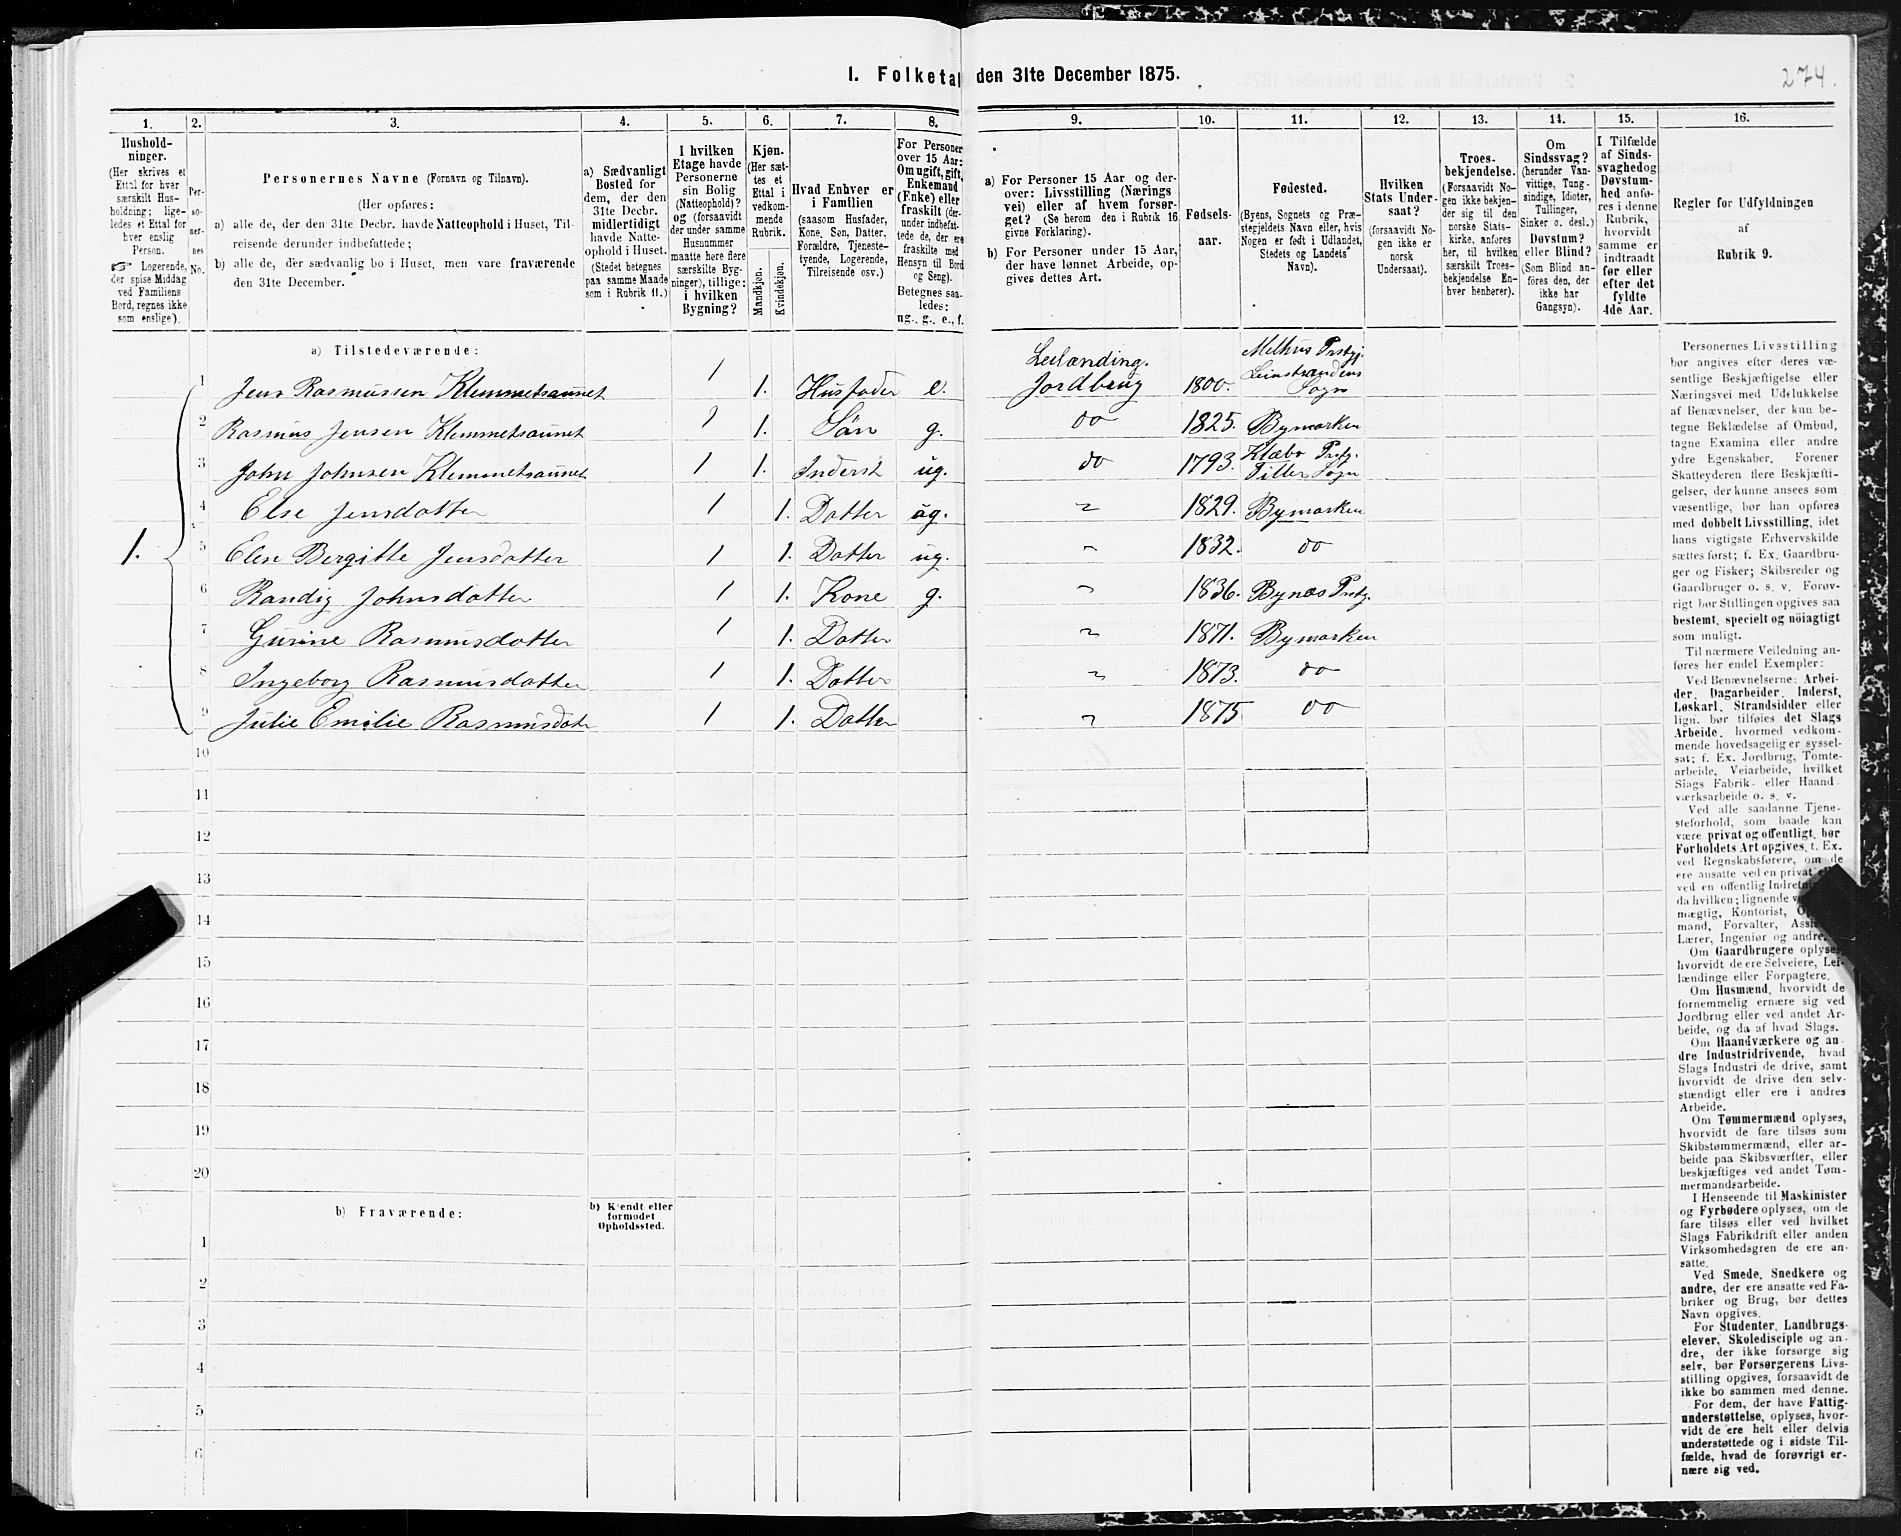 I. Folketal den 31te December 1875.
274.
1.
2.
3.
4.
5.
6.
7.
8.
9.
10.
11.
12.
13.
14.
15.
16.
Hushold-
ninger.
(Her skrives et
Ettal for hver
særskilt Hus-
holdning; lige-
ledes et Ettal for
hver enslig
Person.
☞ Logerende,
der spise Middag
ved Familiens
Bord, regnes ikke
som enslige).
Per-
so-
ner-
nes
No.
Personernes Navne (Fornavn og Tilnavn).
(Her opføres:
a) alle de, der den 31te Decbr. havde Natteophold i Huset, Til-
reisende derunder indbefattede;
b) alle de, der sædvanlig bo i Huset, men vare fraværende
den 31te December.
a) Sædvanligt
Bosted for
dem, der den
31te Decbr.
midlertidigt
havde Natte-
ophold i Huset.
(Stedet betegnes
paa samme Maade
som i Rubrik 11.)
I hvilken
Etage havde
Personerne
sin Bolig
(Natteophold)?
og (forsaavidt
der under samme
Husnummer
maatte høre flere
særskilte Byg-
ninger), tillige:
i hvilken
Bygning?
Kjøn.
(Her sæt-
tes et
Ettal i
vedkom-
mende
Rubrik.
Mandkjøn.
Kvindekjøn.
Hvad Enhver er
i Familien
(saasom Husfader,
Kone, Søn, Datter,
Forældre, Tjeneste-
tyende, Logerende,
Tilreisende osv.)
For Personer
over 15 Aar:
Om ugift, gift,
Enkemand
(Enke) eller
fraskilt (der-
under indbefat-
tede de, der ere
fraskilte med
Hensyn til Bord
og Seng).
Betegnes saa-
ledes:
ug., g., e., f.
a) For Personer 15 Aar og der-
over: Livsstilling (Nærings
vei) eller af hvem forsør-
get? (Se herom den i Rubrik 16
givne Forklaring).
b) For Personer under 15 Aar,
der have lønnet Arbeide, op-
gives dettes Art.
Fødsels-
aar.
Fødested.
(Byens, Sognets og Præ-
stegjeldets Navn eller, hvis
Nogen er født i Udlandet,
Stedets og Landets
Navn).
Hvilken
Stats Under-
saat?
(forsaavidt No-
gen ikke er
norsk
Undersaat).
Troes-
bekjendelse.
(Forsaavidt No-
gen ikke bekjen-
der sig til den
norske Stats-
kirke, anføres
her, til hvilken
særskilt Troes-
bekjendelse En-
hver henhører).
Om
Sindssvag?
(herunder Van-
vittige, Tung-
sindige, Idioter,
Tullinger,
Sinker o. desl.)
Døvstum?
eller Blind?
(Som Blind an-
føres den, der
ikke har
Gangsyn).
I Tilfælde
af Sinds-
svaghed og
Døvstum-
hed anfø-
res i denne
Rubrik,
hvorvidt
samme er
indtraadt
før eller
efter det
fyldte
4de Aar.
Regler for Udfyldningen
af
Rubrik 9.
a) Tilstedeværende:
1.
1 Jens Rasmussen Klemmetsaunet 1 1. Husfader e. Leilænding. Jordbrug 1800. Melhus Prstgj. Leinstrandens Sogn
2 Rasmus Jensen Klemmetsaunet 1 1. Søn g. do 1825. Bymarken
3 John Johnsen Klemmetsaunet 1 1. Inderst ug. do 1793. Klæbo Prstg. Tiller Sogn
4 Else Jensdatter 1 1. Datter ug. " 1829. Bymarken
5 Elen Bergitte Jensdatter 1 1. Datter ug. " 1832. do
6 Randig Johnsdatter 1 1. Kone g. " 1836. Bynæs Prstg.
7 Gurine Rasmusdatter 1 1. Datter " 1871. Bymarken
8 Ingeborg Rasmusdatter 1 1. Datter " 1873. do
9 Julie Emilie Rasmusdatr 1 1. Datter " 1875 do
10
11
12
13
14
15
16
17
18
19
20
b) Fraværende:
b) Kjendt eller
formodet
Opholdssted.
1
2
3
4
5
6
Personernes Livsstilling
bør angives efter deres væ-
sentlige Beskjæftigelse eller
Næringsvei med Udelukkelse
af Benævnelser, der kun be-
tegne Beklædelse af Ombud,
tagne Examina eller andre
ydre Egenskaber. Forener
Skatteyderen flere Beskjæfti-
gelser, der kunne ansees som
væsentlige, bør han opføres
med dobbelt Livsstilling, idet
hans vigtigste Erhvervskilde
sættes først; f. Ex. Gaardbru-
ger og Fisker; Skibsreder og
Gaardbruger o. s. v. Forøv-
rigt bør Stillingen opgives saa
bestemt, specielt og nöiagtigt
som muligt.
Til nærmere Veiledning an-
føres her endel Exempler:
Ved Benævnelserne: Arbei-
der, Dagarbeider, Inderst,
Løskarl, Strandsidder eller
lign. bør tilføies det Slags
Arbeide, hvormed vedkom-
mende hovedsagelig er syssel-
sat; f. Ex. Jordbrug, Tomte-
arbeide, Veiarbeide, hvilket
Slags Fabrik- eller Haand-
værksarbeide o. s. v.
Ved alle saadanne Tjene-
steforhold, som baade kan
være privat og offentligt, bør
Forholdets Art opgives, f. Ex.
ved Regnskabsførere, om de
ere ansatte ved en privat
ved en offentlig
da hvilken; lignende
mægtig, Kontorist,
mand, Forvalter,
Lærer, Ingeniør og andre.
Om Gaardbrugere oplyses,
hvorvidt de ere Selveiere, Lei-
lændinge eller Forpagtere.
Om Husmænd, hvorvidt de
fornemmelig ernære sig ved
Jordbrug eller ved andet Ar-
beide, og da af hvad Slags.
Om Haandværkere og an-
dre Industridrivende, hvad
Slags Industri de drive, samt
hvorvidt de drive den selv-
stændigt eller ere i andres
Arbeide.
Om Tømmermænd oplyses,
hvorvidt de fare tilsøs som
Skibstømmermænd, eller ar-
beide paa Skibsværfter, eller
beskjæftiges ved andet Tøm-
mermandsarbeide.
I Henseende til Maskinister
og Fyrbødere oplyses, om de
fare tilsøs eller ved hvilket
Slags Fabrikdrift eller anden
Virksomhedsgren de ere an-
satte.
Ved Smede, Snedkere og
andre, der ere ansatte ved Fa-
briker og Brug, bør dettes
Navn opgives.
For Studenter, Landbrugs-
elever, Skoledisciple og an-
dre, der ikke forsørge sig
selv, bør Forsørgerens Livs-
stilling opgives, forsaavidt de
ikke bo sammen med denne.
For dem, der have Fattig-
understøttelse, oplyses, hvor-
vidt de ere helt eller delvis
understøttede og i sidste Til-
fælde, hvad de forøvrigt er-
nære sig ved.